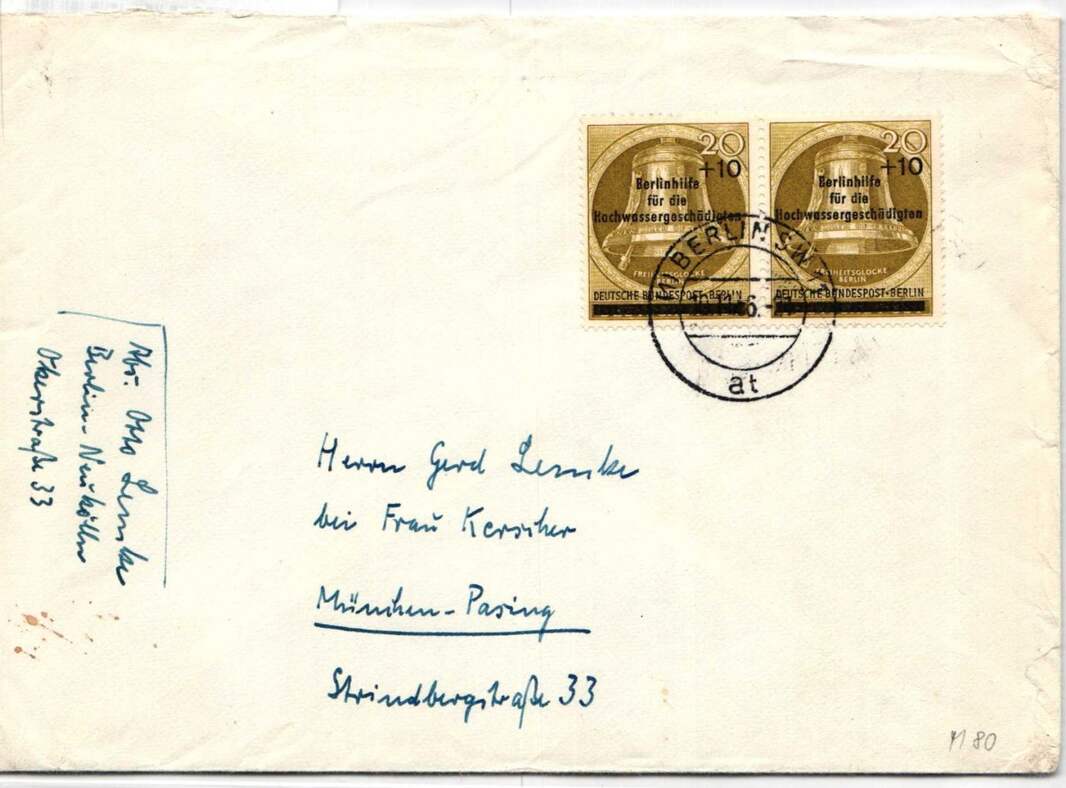 20
+10
Berlinhilfe
für die
Hochwassergeschädigten
FREIHEITSGLOCKE
DEUTSCHE BUNDESPOST·BERLIN
20
+10
Berlinhilfe
für die
Hochwassergeschädigten
FREIHEITSGLOCKE
BERLIN
DEUTSCHE BUNDESPOST·BERLIN
BERLIN SW
at
Abs. Otto Lemke
Berlin-Neukölln
Okerstraße 33
Herrn Gerd Lemke
bei Frau Kerscher
München-Pasing
Strindbergstraße 33
M 80